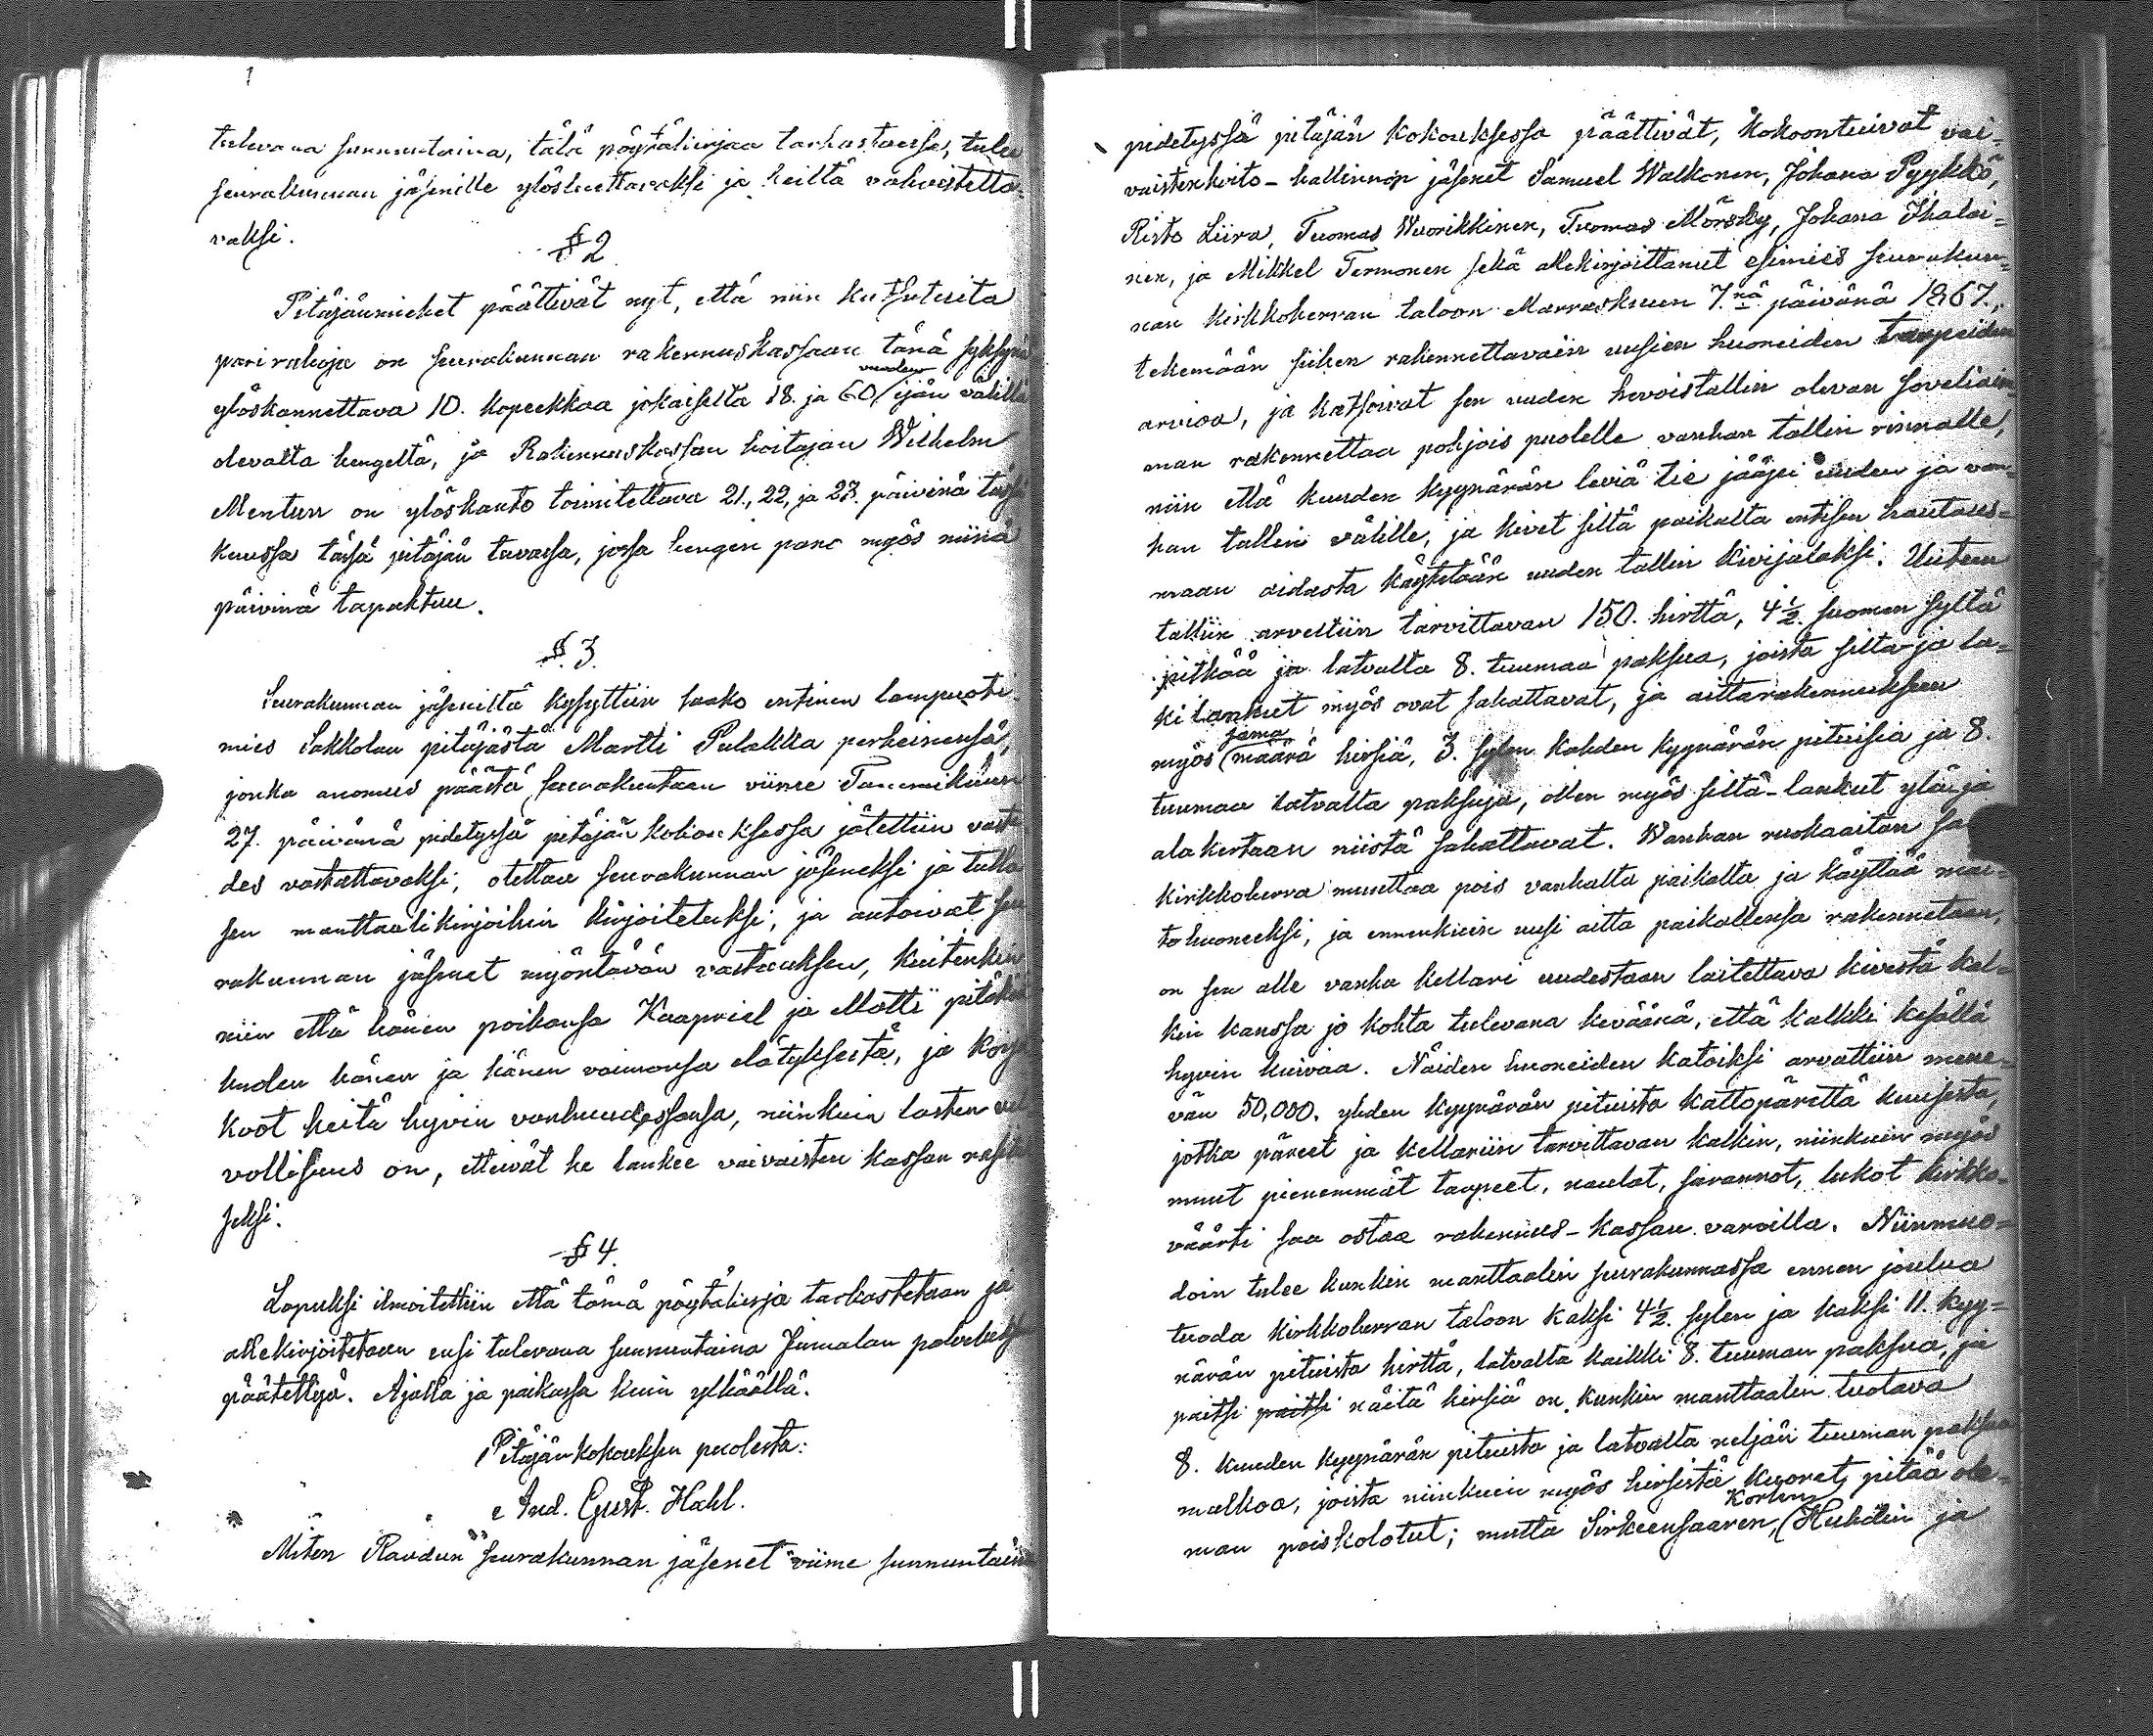 tulevana sunnuntaina, tätä pöytäkirjaa tarkastaissa, tulee
seurakunnan jäsenille ylösluettavaksi ja heiltä vahvistetta-
vaksi.
§ 2
Pitäjänmiehet päättivät nyt, että niin kutsutuita
parirahoja on seurakunnan rakennuskassaan tänä syksynä
ylöskannettava 10. kopeekkaa jokaiselta 18. ja 60 vuoden ijän välillä
olevalta hengeltä, ja Rakennuskassan hoitajan Wilhelm
Mentun on ylöskanto toimitettava 21., 22, ja 23. päivinä tässä
kuussa tässä pitäjän tuvassa, jossa hengin pano myös niinä
päivinä tapahtuu.
§ 3.
Seurakunnan jäseniltä kysyttiin saako entinen lampuoti
mies Sakkolan pitäjästä Martti Pulakka perheinensä,
jonka anomus päästä seurakuntaan viime Tammikuun
27. päivänä pidetyssä pitäjän kokouksessa jätettiin vasta
des vastattavaksi, otettaa seurakunnan jäseneksi ja tulla
sen manttaalikirjoihin kirjoitetuksi; ja antoivat seu
rakunnan jäsenet myöntävän vastauksen, kuitenkin
niin että hänen poikansa Kaapriel ja Matti pitäkö
huolen hänen ja hänen vaimonsa elätyksestä, ja
koot heitä hyvin vanhuudessansa, niinkuin lasten vel
vollisuus on, etteivät he lankee vaivaisten kassan rasituk
seksi.
§ 4.
Lopuksi ilmoitettiin että tämä pöytäkirja tarkastetaan ja
allekirjoitetaan ensi tulevana sunnuntaina Jumalan palveluksen
päätettyä. Ajalla ja paikassa kuin ylhäällä.
Pitäjänkokouksen puolesta:
And. Gust. Hahl.
Miten Raudun seurakunnan jäsenet viime sunnuntaina
pidetyssä pitäjän kokouksessa päättivät, kokoontuivat vai-
vaistenhoito-hallinnon jäsenet Samuel Walkonen, Johana Pyykkö,
Risto Liira, Tuomas Wuorikkinen, Tuomas Mörsky, Johana Ihalai=
nen, ja Mikkel Termonen sekä allekirjoittanut esimies seurakun=
nan kirkkoherran taloon Marraskuun 7.nä päivänä 1867.,
tekemään siihen rakennettavain uusien huoneiden tarpeiden
arvioa, ja katsoivat sen uuden hevoistallin olevan soveliaim
man rakennettaa pohjois puolelle vanhan tallin rinnalle,
niin että kuuden kyynärän leviä tie jääpi uuden ja van-
han tallin välille, ja kivet siltä paikalta entisen hautaus=
maan aidasta käytetään uuden tallin kivijalaksi. Uuteen
talliin arveltiin tarvittavan 150. hirttä, 4½. suomen syltä
pitkää ja latvalta 8. tuumaa paksua, joista silta ja la=
kilankut myös ovat sahattavat, ja aittarakennukseen
myös sama määrä hirsiä, 3. sylen kahden kyynärän pituisia ja 8.
tuumaa latvalta paksuja, ollen myös silta-lankut ylä ja
alakertaan niistä sahattavat. Wanhan ruokaaitan saa
kirkkoherra muuttaa pois vanhalta paikalta ja käyttää mai=
tohuoneeksi, ja ennenkuin uusi aitta paikallensa rakennetaan,
on sen alle vanha kellari uudestaan laitettava kivestä kal=
kin kanssa jo kohta tulevana keväänä, että kalkki kesällä
hyvin kuivaa. Näiden huoneiden katoiksi arvattiin mene=
vän 50,000. yhden kyynärän pituista kattopärettä kuusesta,
jotka päreet ja kellariin tarvittavan kalkin, niinkuin myös
muut pienemmät tarpeet, naulat, sarannot, lukot kirkko=
väärti saa ostaa rakennus-kassan varoilla. Niinmuo=
doin tulee kunkin manttaalin seurakunnassa ennen joulua
tuoda kirkkoherran taloon kaksi 4½. sylen ja kaksi 11. kyy=
närän pituista hirttä, latvalta kaikki 8. tuuman paksua, ja
paitsi paitsi näitä hirsiä on kunkin manttaalin tuotava
8. kuuden kyynärän pituista ja latvalta neljän tuuman paksua
malkoa, joista niinkuin myös hirsistä kuoret pitää ole=
man poiskolotut; mutta Sirkeensaaren, Korlen Huhdin ja